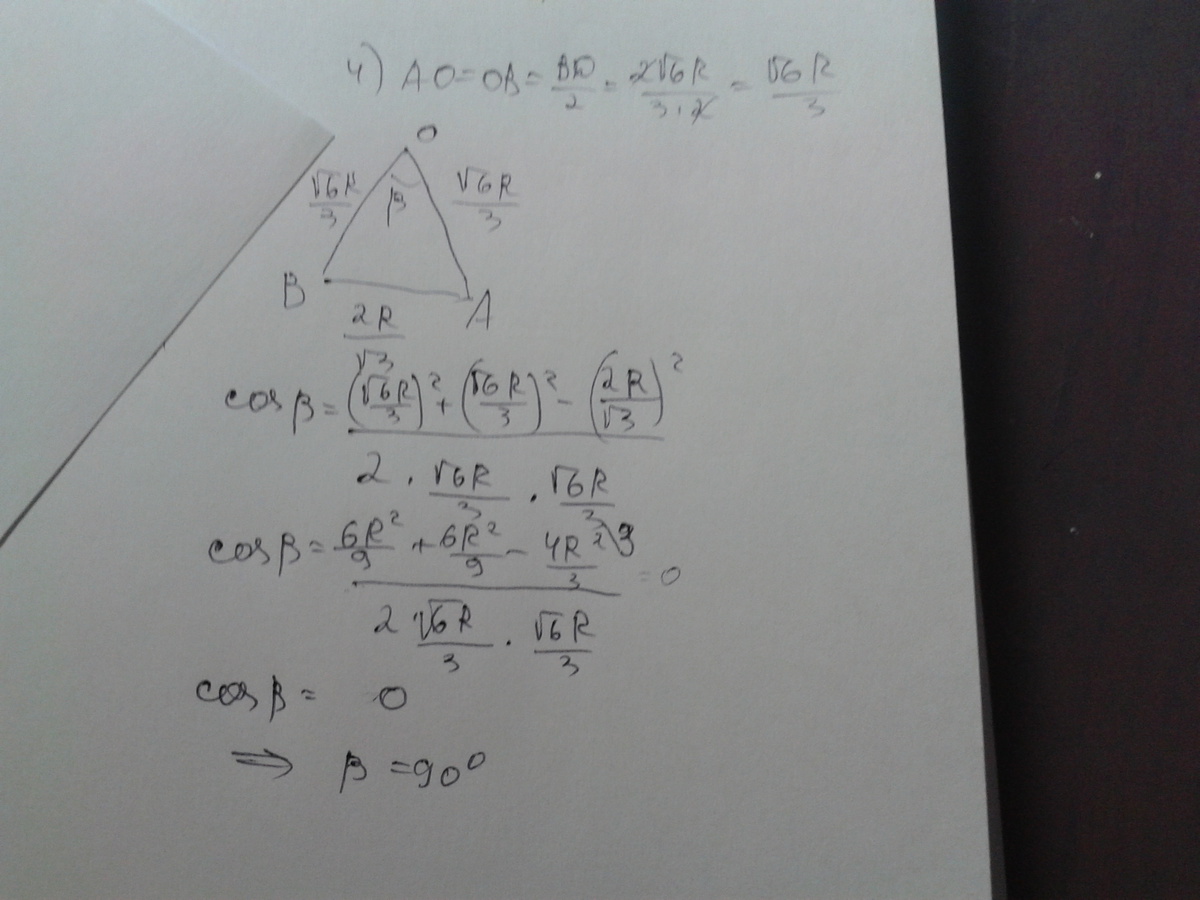 4) AO = OB = BD/2 = 2√6R/3·2 = √6R/3
O
√6R/3 β √6R/3
B A
2R/√3
cos β = ((√6R/3)² + (√6R/3)² − (2R/√3)²)/(2 · √6R/3 · √6R/3)
cos β = (6R²/9 + 6R²/9 − 4R²/3)/(2 √6R/3 · √6R/3) = 0
cos β = 0
⇒ β = 90°